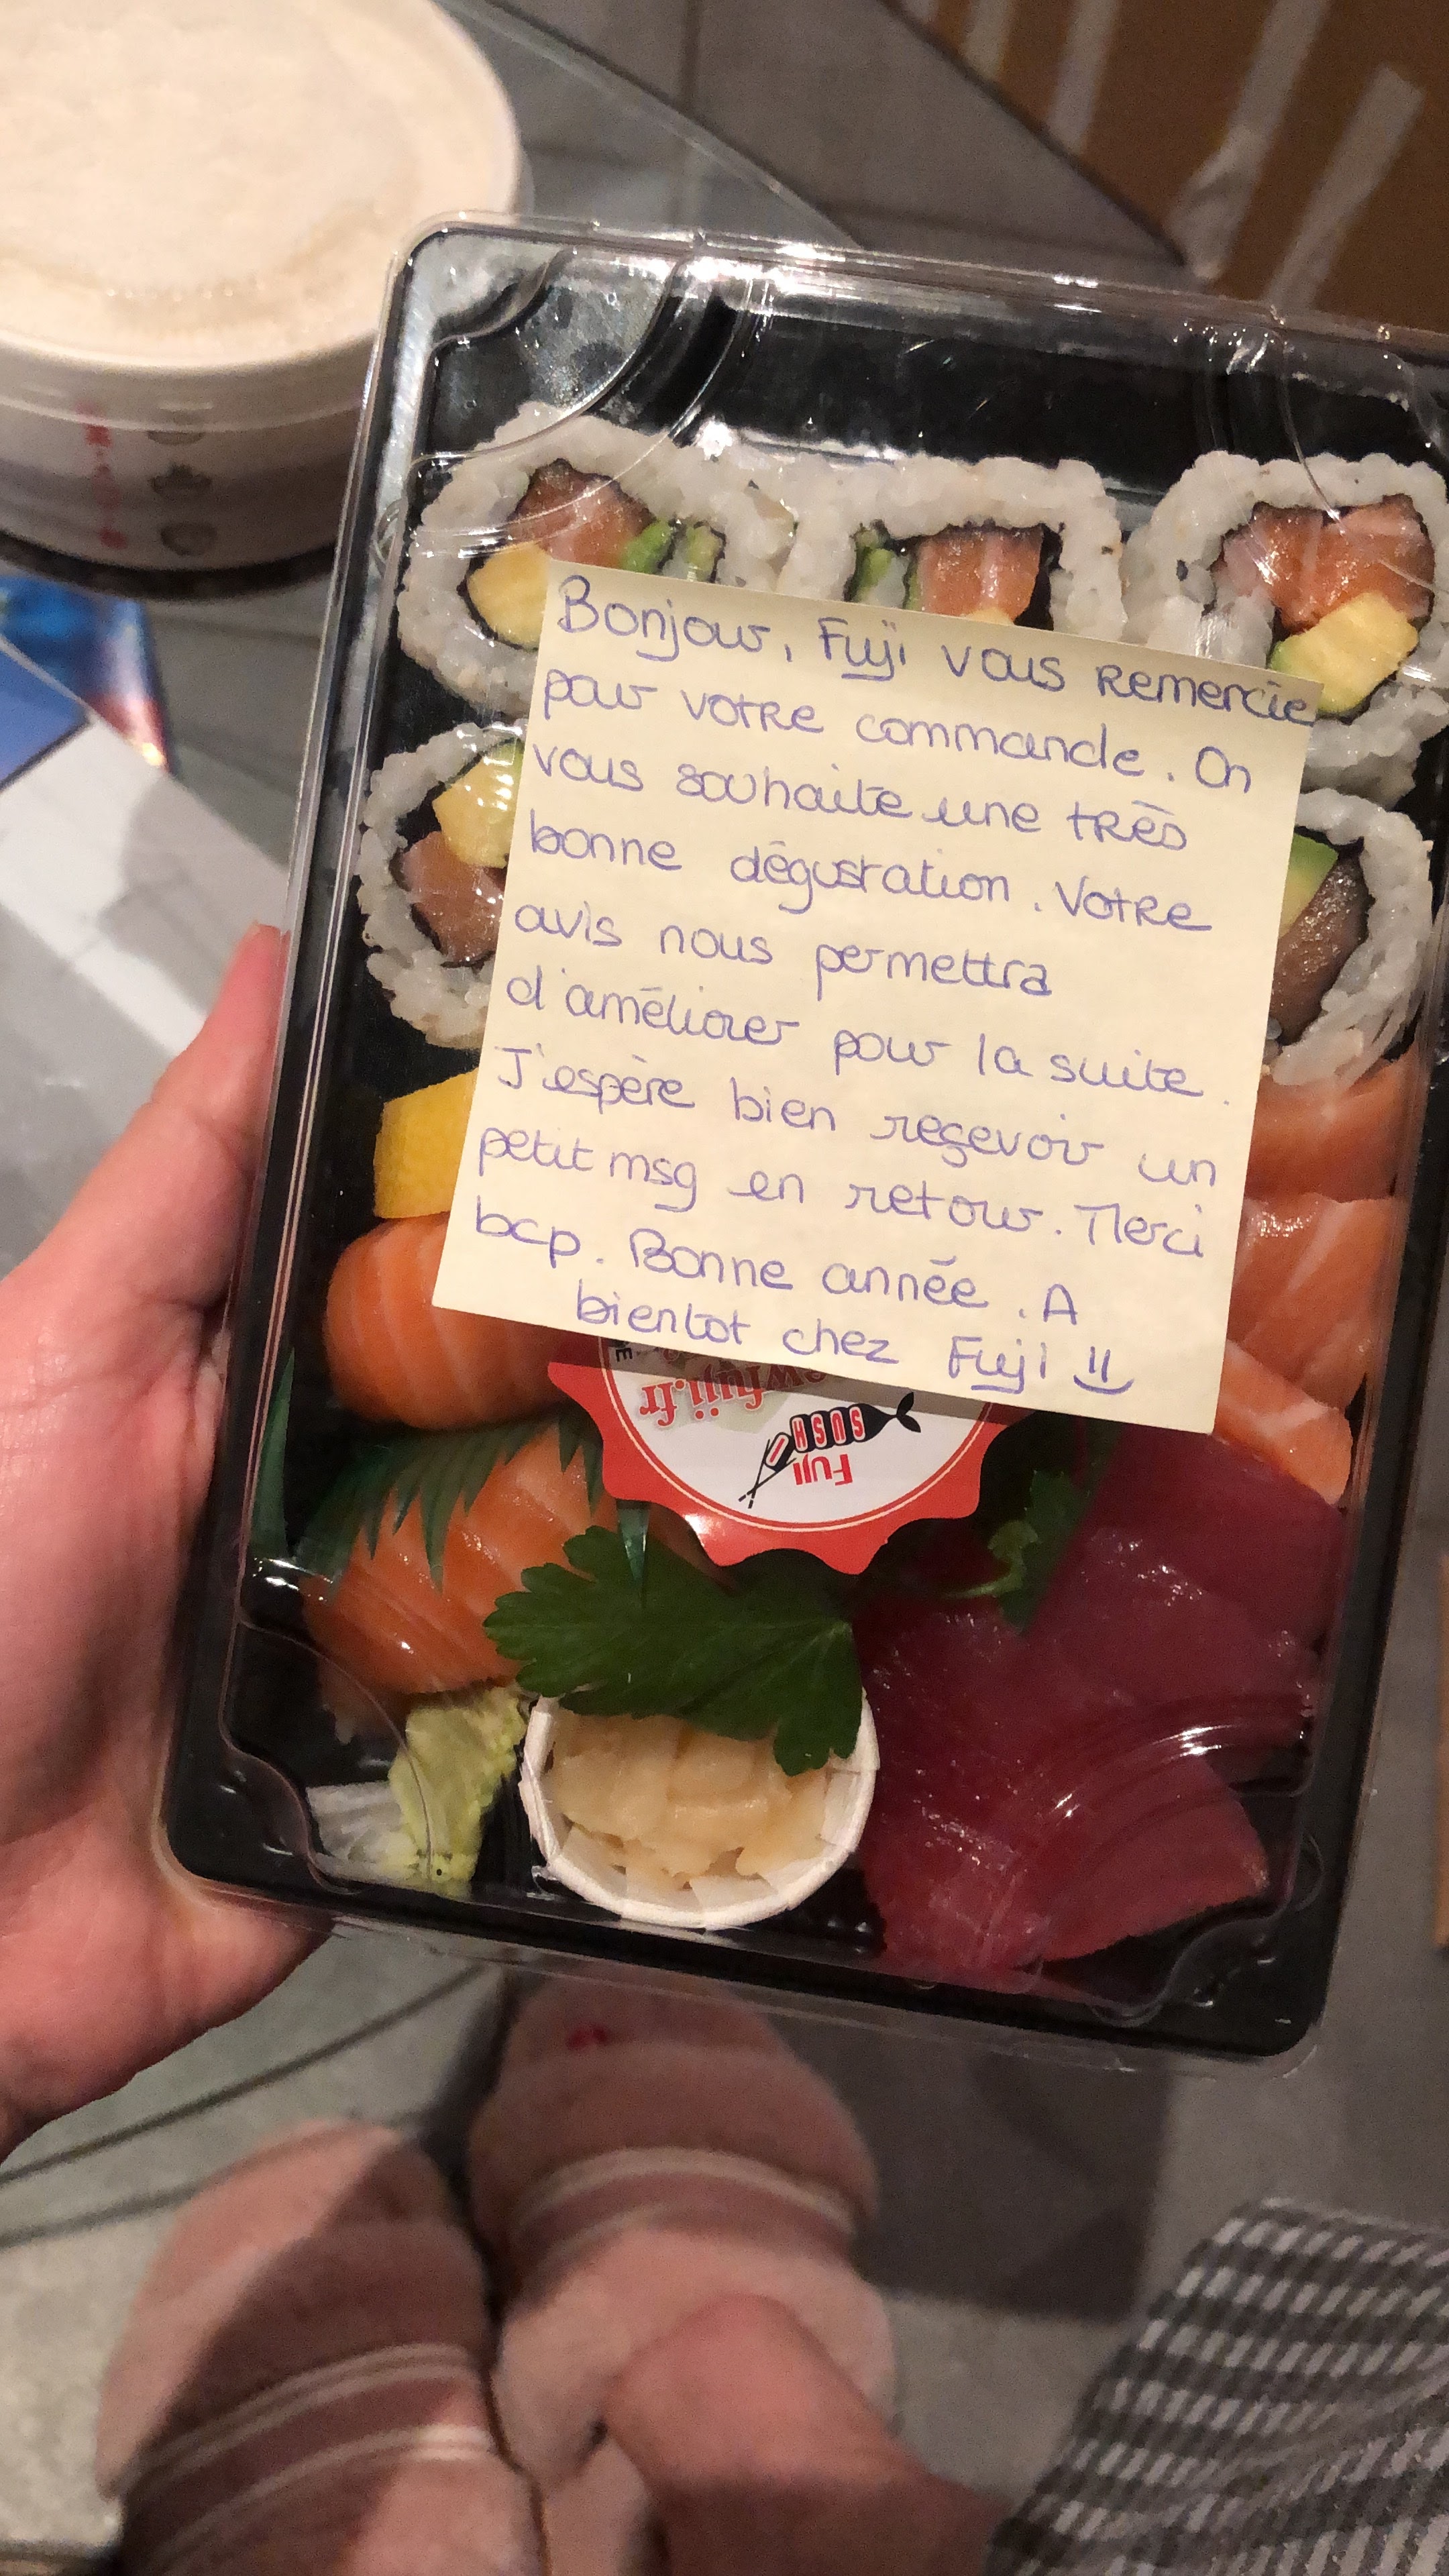 Bonjour, Fuji vous remercie
pour votre commande. On
vous souhaite une très
bonne dégustation. Votre
avis nous permettra
d'améliorer pour la suite.
J'espère bien reçevoir un
petit msg en retour. Merci
bcp. Bonne année. A
bientot chez Fuji
wfuji.fr
SUSHI
Fuji